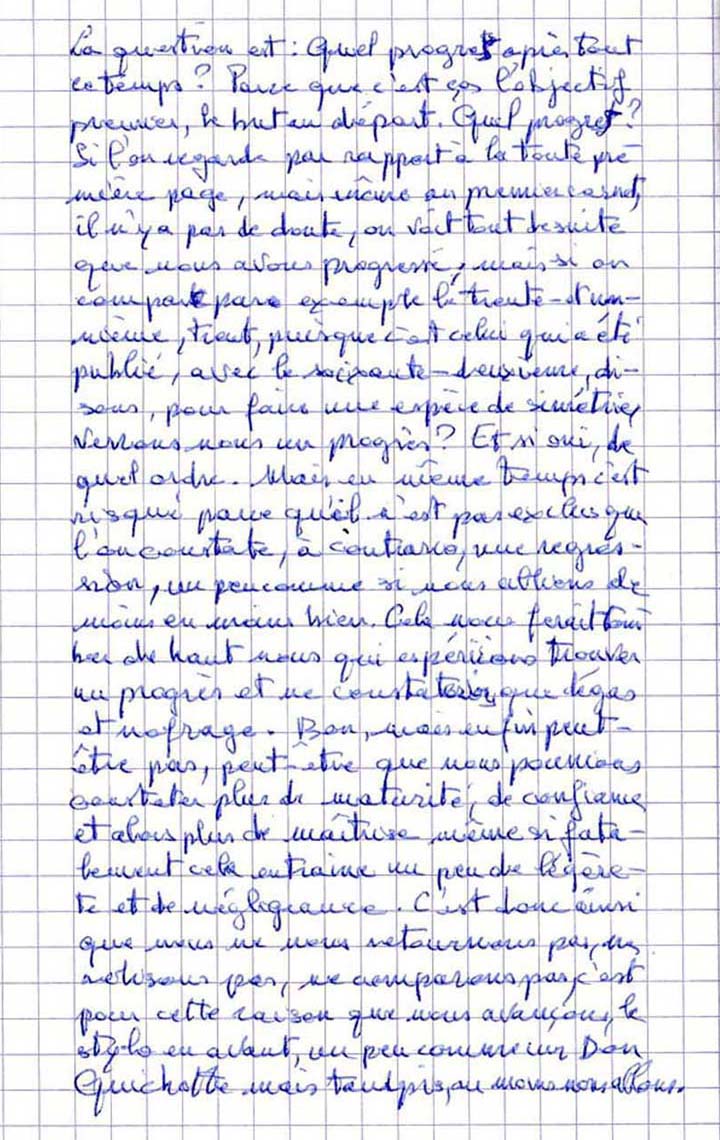 La question est : Quel progrès après tout
ce temps ? Parce que c'est ça l'objectif
premier, le but au départ. Quel progrès ?
Si l'on regarde par rapport à la toute pre
mière page, mais même au premier carnet,
il n'y a pas de doute, on voit tout de suite
que nous avons progressé, mais si on
compare par exemple le trente-et-un-
nième, tient, puisque c'est celui qui a été
publié, avec le soixante-deuxième, di-
sons, pour faire une espèce de simétrie,
verrons nous un progrès ? Et si oui, de
quel ordre. Mais en même temps c'est
risqué parce qu'il n'est pas exclus que
l'on constate, à contrario, une regres-
sion, un peu comme si nous allions de
moins en moins bien. Cela nous ferait tom
ber de haut nous qui espérions trouver
un progrès et ne constaterions que dégas
et nofrage. Bon, mais enfin peut-
être pas, peut-être que nous pourrions
constater plus de maturité, de confiance
et alors plus de maîtrise même si fata-
lement cela entraine un peu de légère-
té et de négligeance. C'est donc ainsi
que nous ne nous retournons pas, ne
relisons pas, ne comparons pas, c'est
pour cette raison que nous avançons, le
stylo en avant, un peu comme un Don
Quichotte mais tant pis, au moins nous allons.